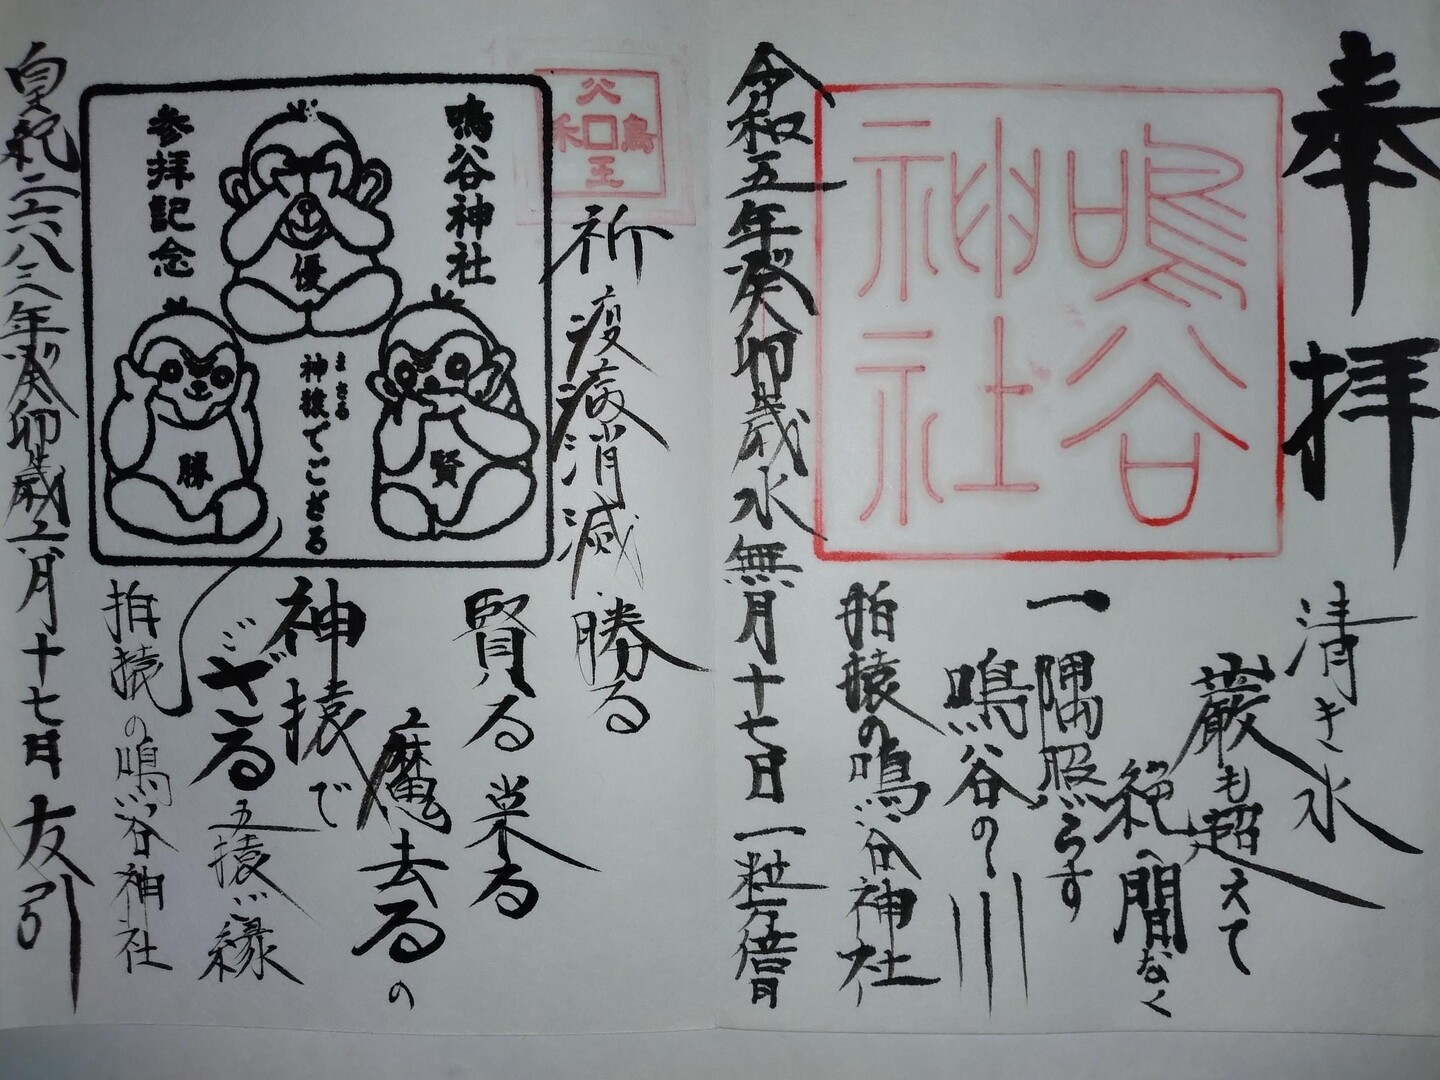 奉拝
鳴谷
神社
清き水
巌も超えて
絶へ間なく
一隅照らす
鳴谷の川
拍猿の鳴谷神社
令和五年癸卯歳水無月十七日 一粒万倍日
祈疫病消滅勝る
賢る
魔去るの
神猿で
ござる五猿が縁
拍猿の鳴谷神社
鳴谷神社
参拝記念
優
勝
賢
まさる
神猿でござる
皇紀二六八三年癸卯歳六月十七日 友引